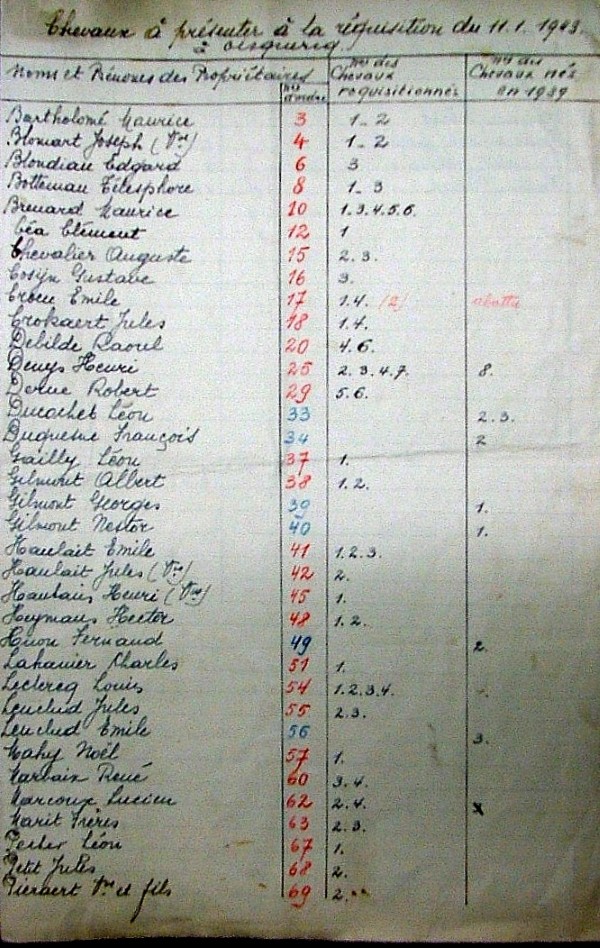 Chevaux à présenter à la réquisition du 11.1.1943.
à Oisquercq.
Noms et Prénoms des Propriétaires Nos d'ordre Nos des Chevaux réquisitionnés Nos des Chevaux nés en 1939
Bartholomé Maurice 3 1-2
Blomart Joseph (Vve) 4 1-2
Blondiau Edgard 6 3
Botteman Télesphore 8 1-3
Brenard Maurice 10 1.3.4.5.6.
Céa Clément 12 1
Chevalier Auguste 15 2.3.
Cosyn Gustave 16 3.
Croeu Emile 17 1.4. (2) abattu
Crokaert Jules 18 1.4.
Debilde Raoul 20 4.6.
Denys Henri 25 2.3.4.7. 8.
Derue Robert 29 5.6.
Ducochet Léon 33 2.3.
Duquesne François 34 2
Gailly Léon 37 1.
Gilmont Albert 38 1.2.
Gilmont Georges 39 1.
Gilmont Nestor 40 1.
Haulait Emile 41 1.2.3.
Haulait Jules (Vve) 42 2.
Hautain Henri (Vve) 45 1.
Heymans Hector 48 1.2.
Huon Fernand 49 2.
Lahanier Charles 51 1.
Leclercq Louis 54 1.2.3.4.
Leuclud Jules 55 2.3.
Leuclud Emile 56 3.
Mahy Noël 57 1.
Marbaix René 60 3.4.
Marcoux Lucien 62 2.4. x
Marit Frères 63 2.3.
Léon 67 1.
Petit Jules 68 2.
Pieraert Vve et fils 69 2.